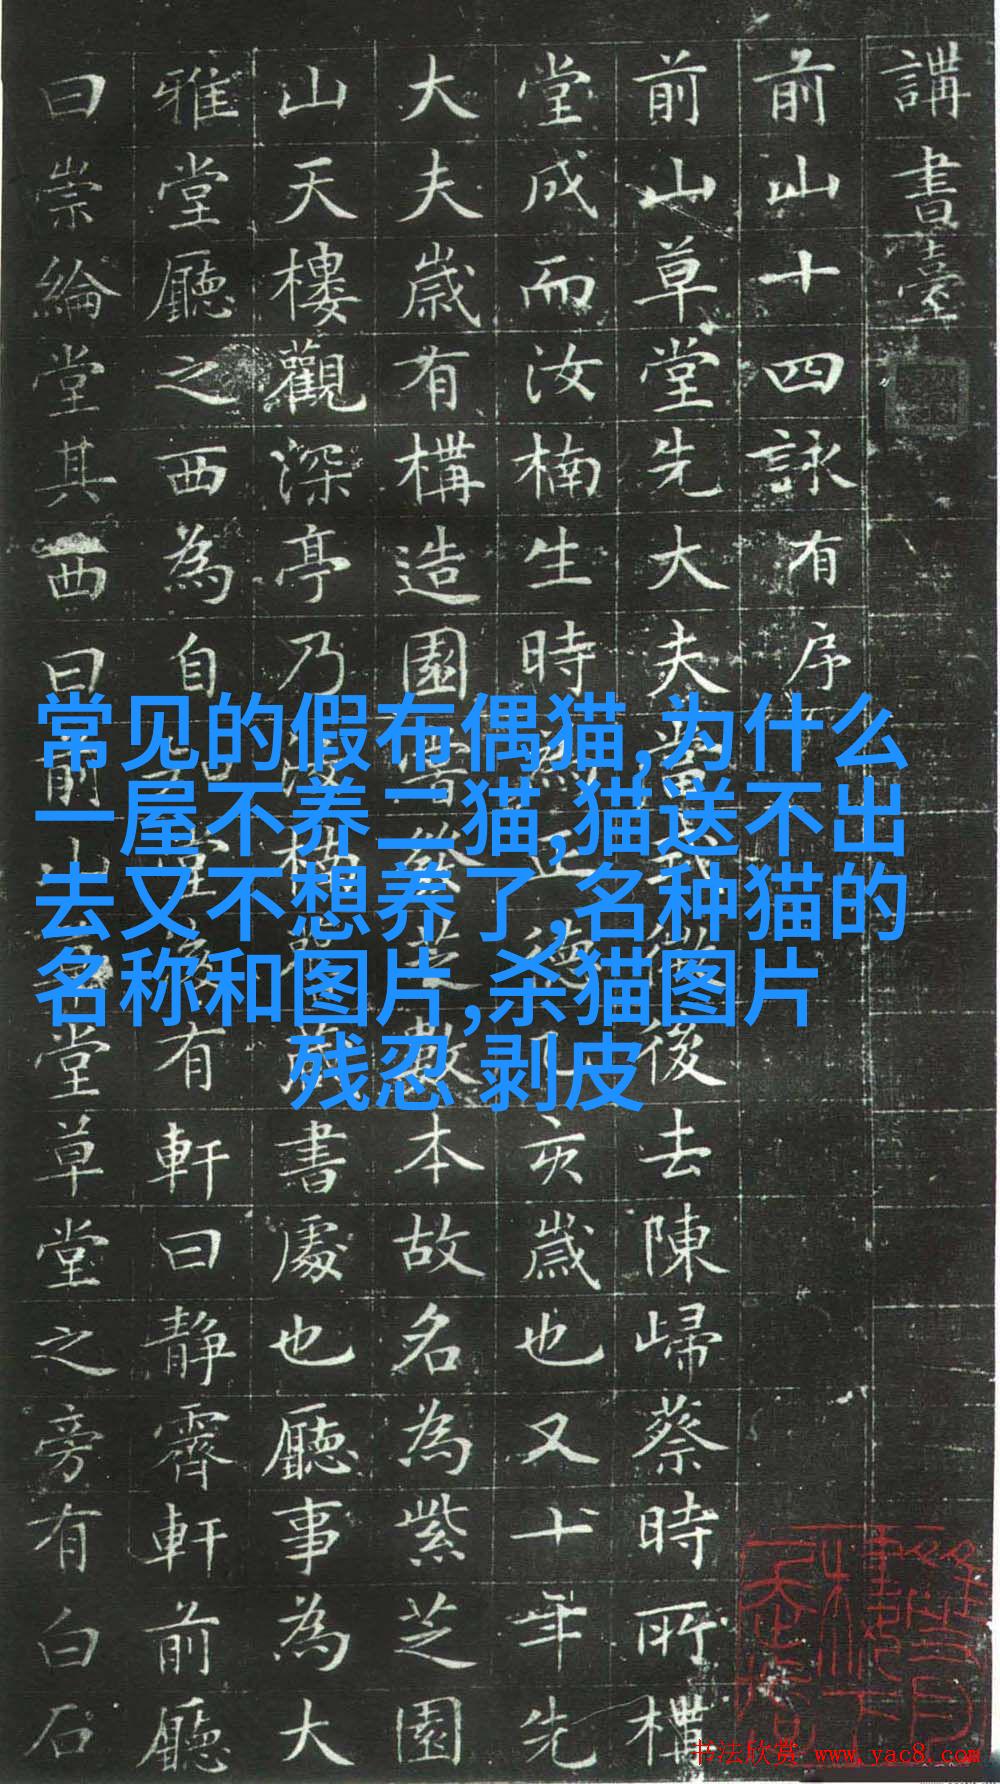 講書臺
前山十四詠有序
前山草堂先大夫當後去陳歸蔡時所構
堂成而汝楠生時正德亥歲也又十年先
大夫歲有構造園嘗發芝數本故名為紫芝園
山天樓觀深亭乃後構藏書處也廳事為大
雅堂廳之西為自知堂後有軒曰靜霽軒前廳
曰崇綸堂其西曰前山草堂草堂之旁有白石
常见的假布偶猫,为什么
一屋不养二猫,猫送不出
去又不想养了,名种猫的
名称和图片,杀猫图片
残忍 剥皮
书法欣赏 www.yac8.com